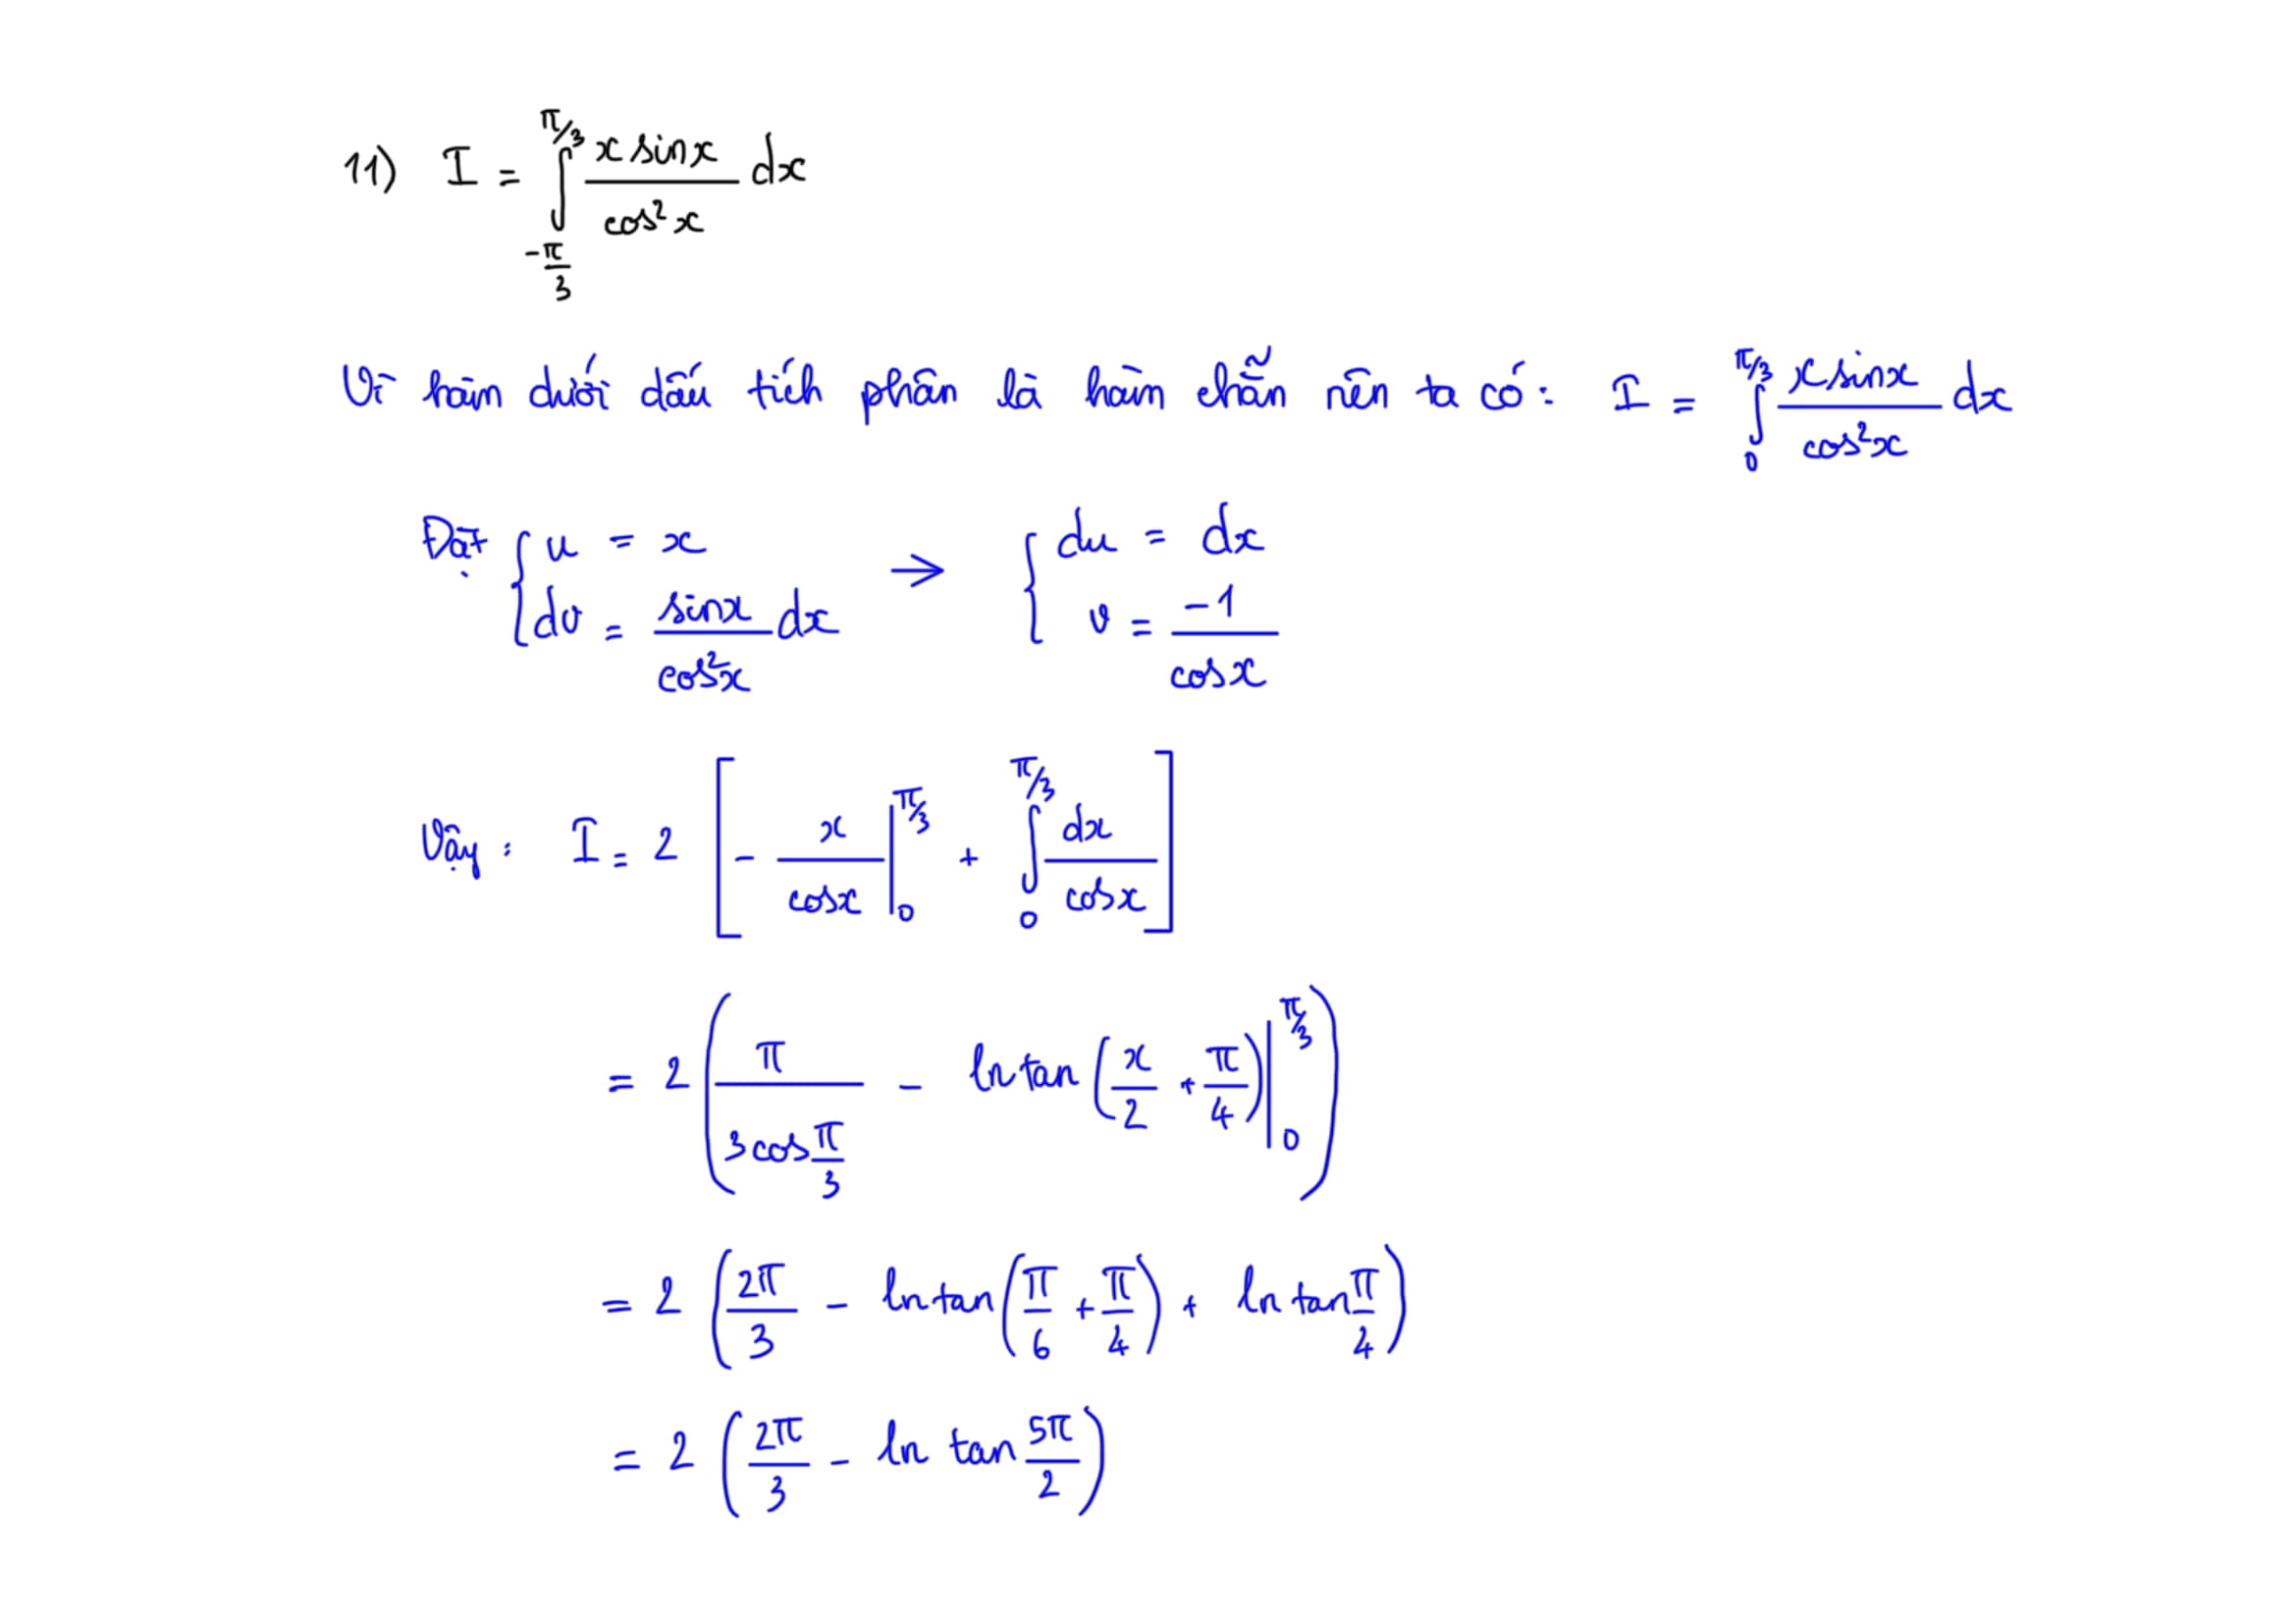 11) I = ∫_{-π/3}^{π/3} (x sinx)/(cos²x) dx
Vì hàm dưới dấu tích phân là hàm chẵn nên ta có: I = ∫_0^{π/3} (x sinx)/(cos²x) dx
Đặt { u = x ; dv = (sinx)/(cos²x) dx → { du = dx ; v = (-1)/(cosx)
Vậy: I = 2 [ - x/(cosx) |_0^{π/3} + ∫_0^{π/3} dx/(cosx) ]
= 2 ( π/(3 cos π/3) - ln tan (x/2 + π/4) |_0^{π/3} )
= 2 ( 2π/3 - ln tan (π/6 + π/4) + ln tan π/4 )
= 2 ( 2π/3 - ln tan 5π/2 )